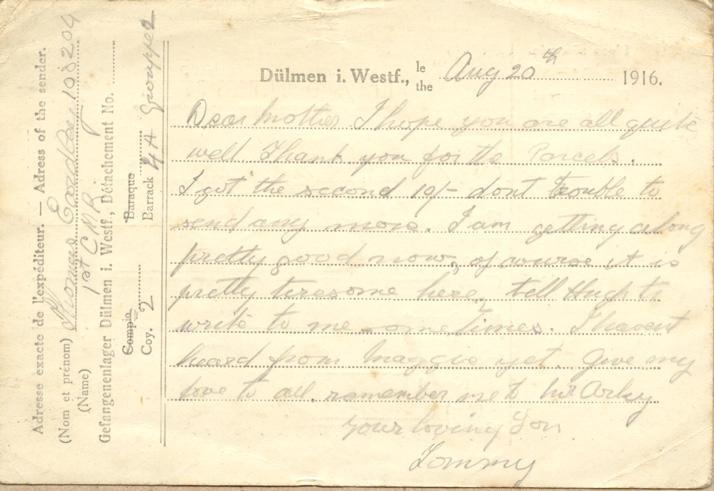 Dülmen i. Westf., le
the Aug 20th 1916.
Dear Mother I hope you are all quite
well Thank you for the Parcels.
I got the second 10/- dont trouble to
send any more. I am getting along
pretty good now, of course it is
pretty tiresome here, tell Hugh to
write to me sometimes. I havent
heard from Maggie yet. Give my
love to all. remember me to
Your loving Son
Tommy
Adresse exacte de l'expéditeur. — Adress of the sender.
(Nom et prénom) Thomas 108204
(Name) 1st C.M.R.
Gefangenenlager Dülmen i. Westf., Détachement No.
Compie Baraque
Coy. 2 Barrack 4A Gruppe 2